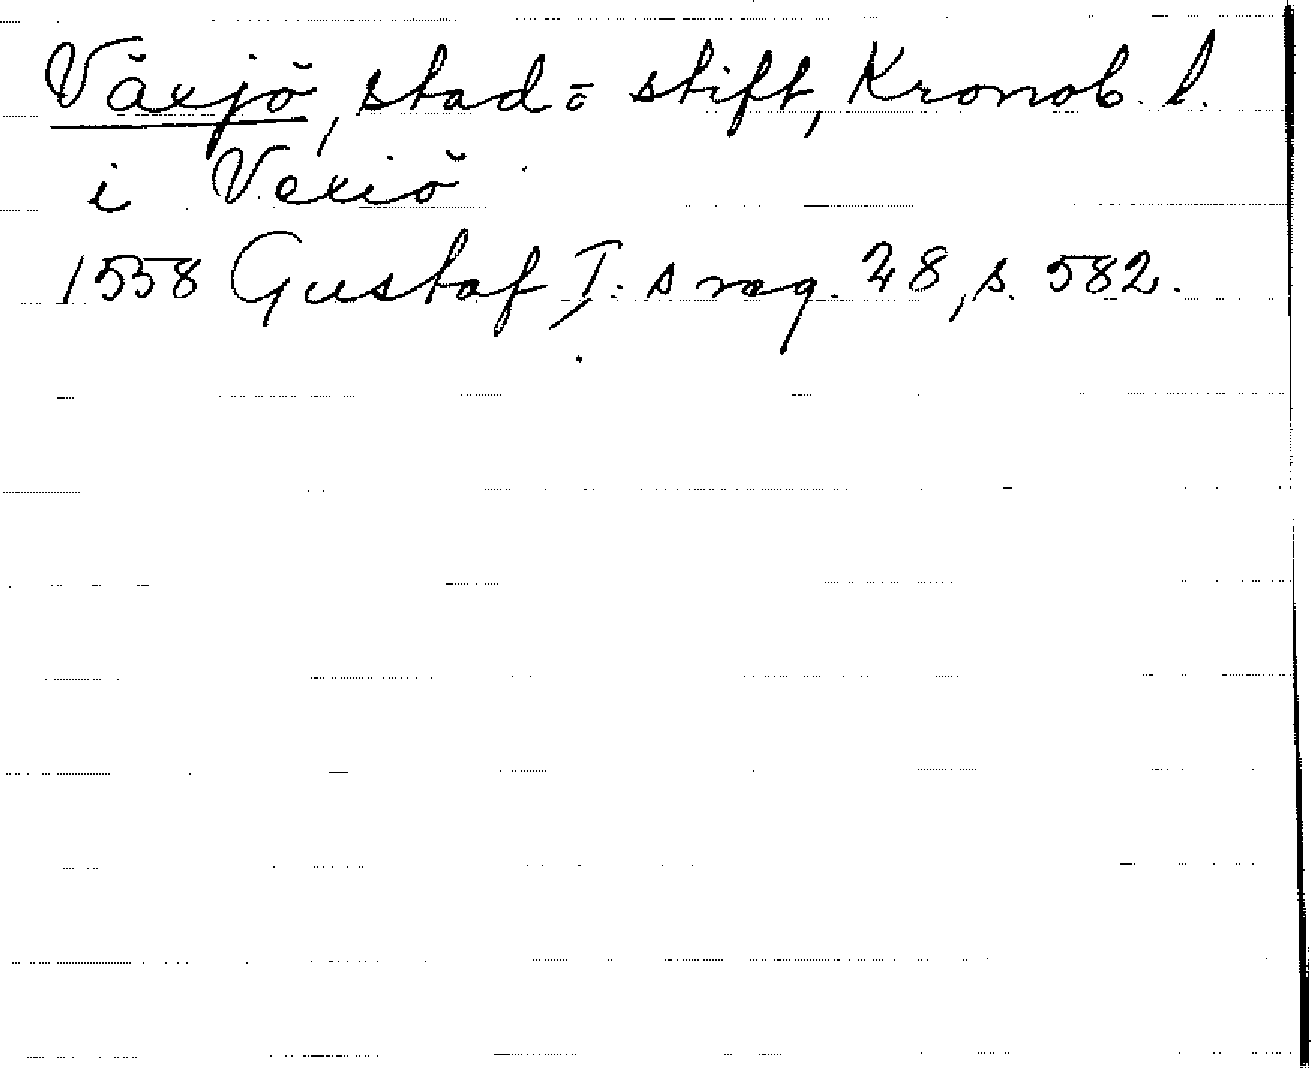 Växjö, stad o stift, Kronob. l.
i Vexiö
1558 Gustaf I:s reg. 28, s. 582.